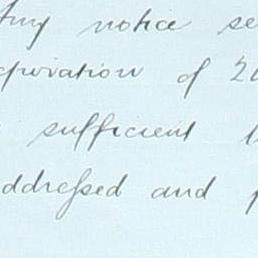 Any notice se
piration of 2
sufficient
ddressed and p